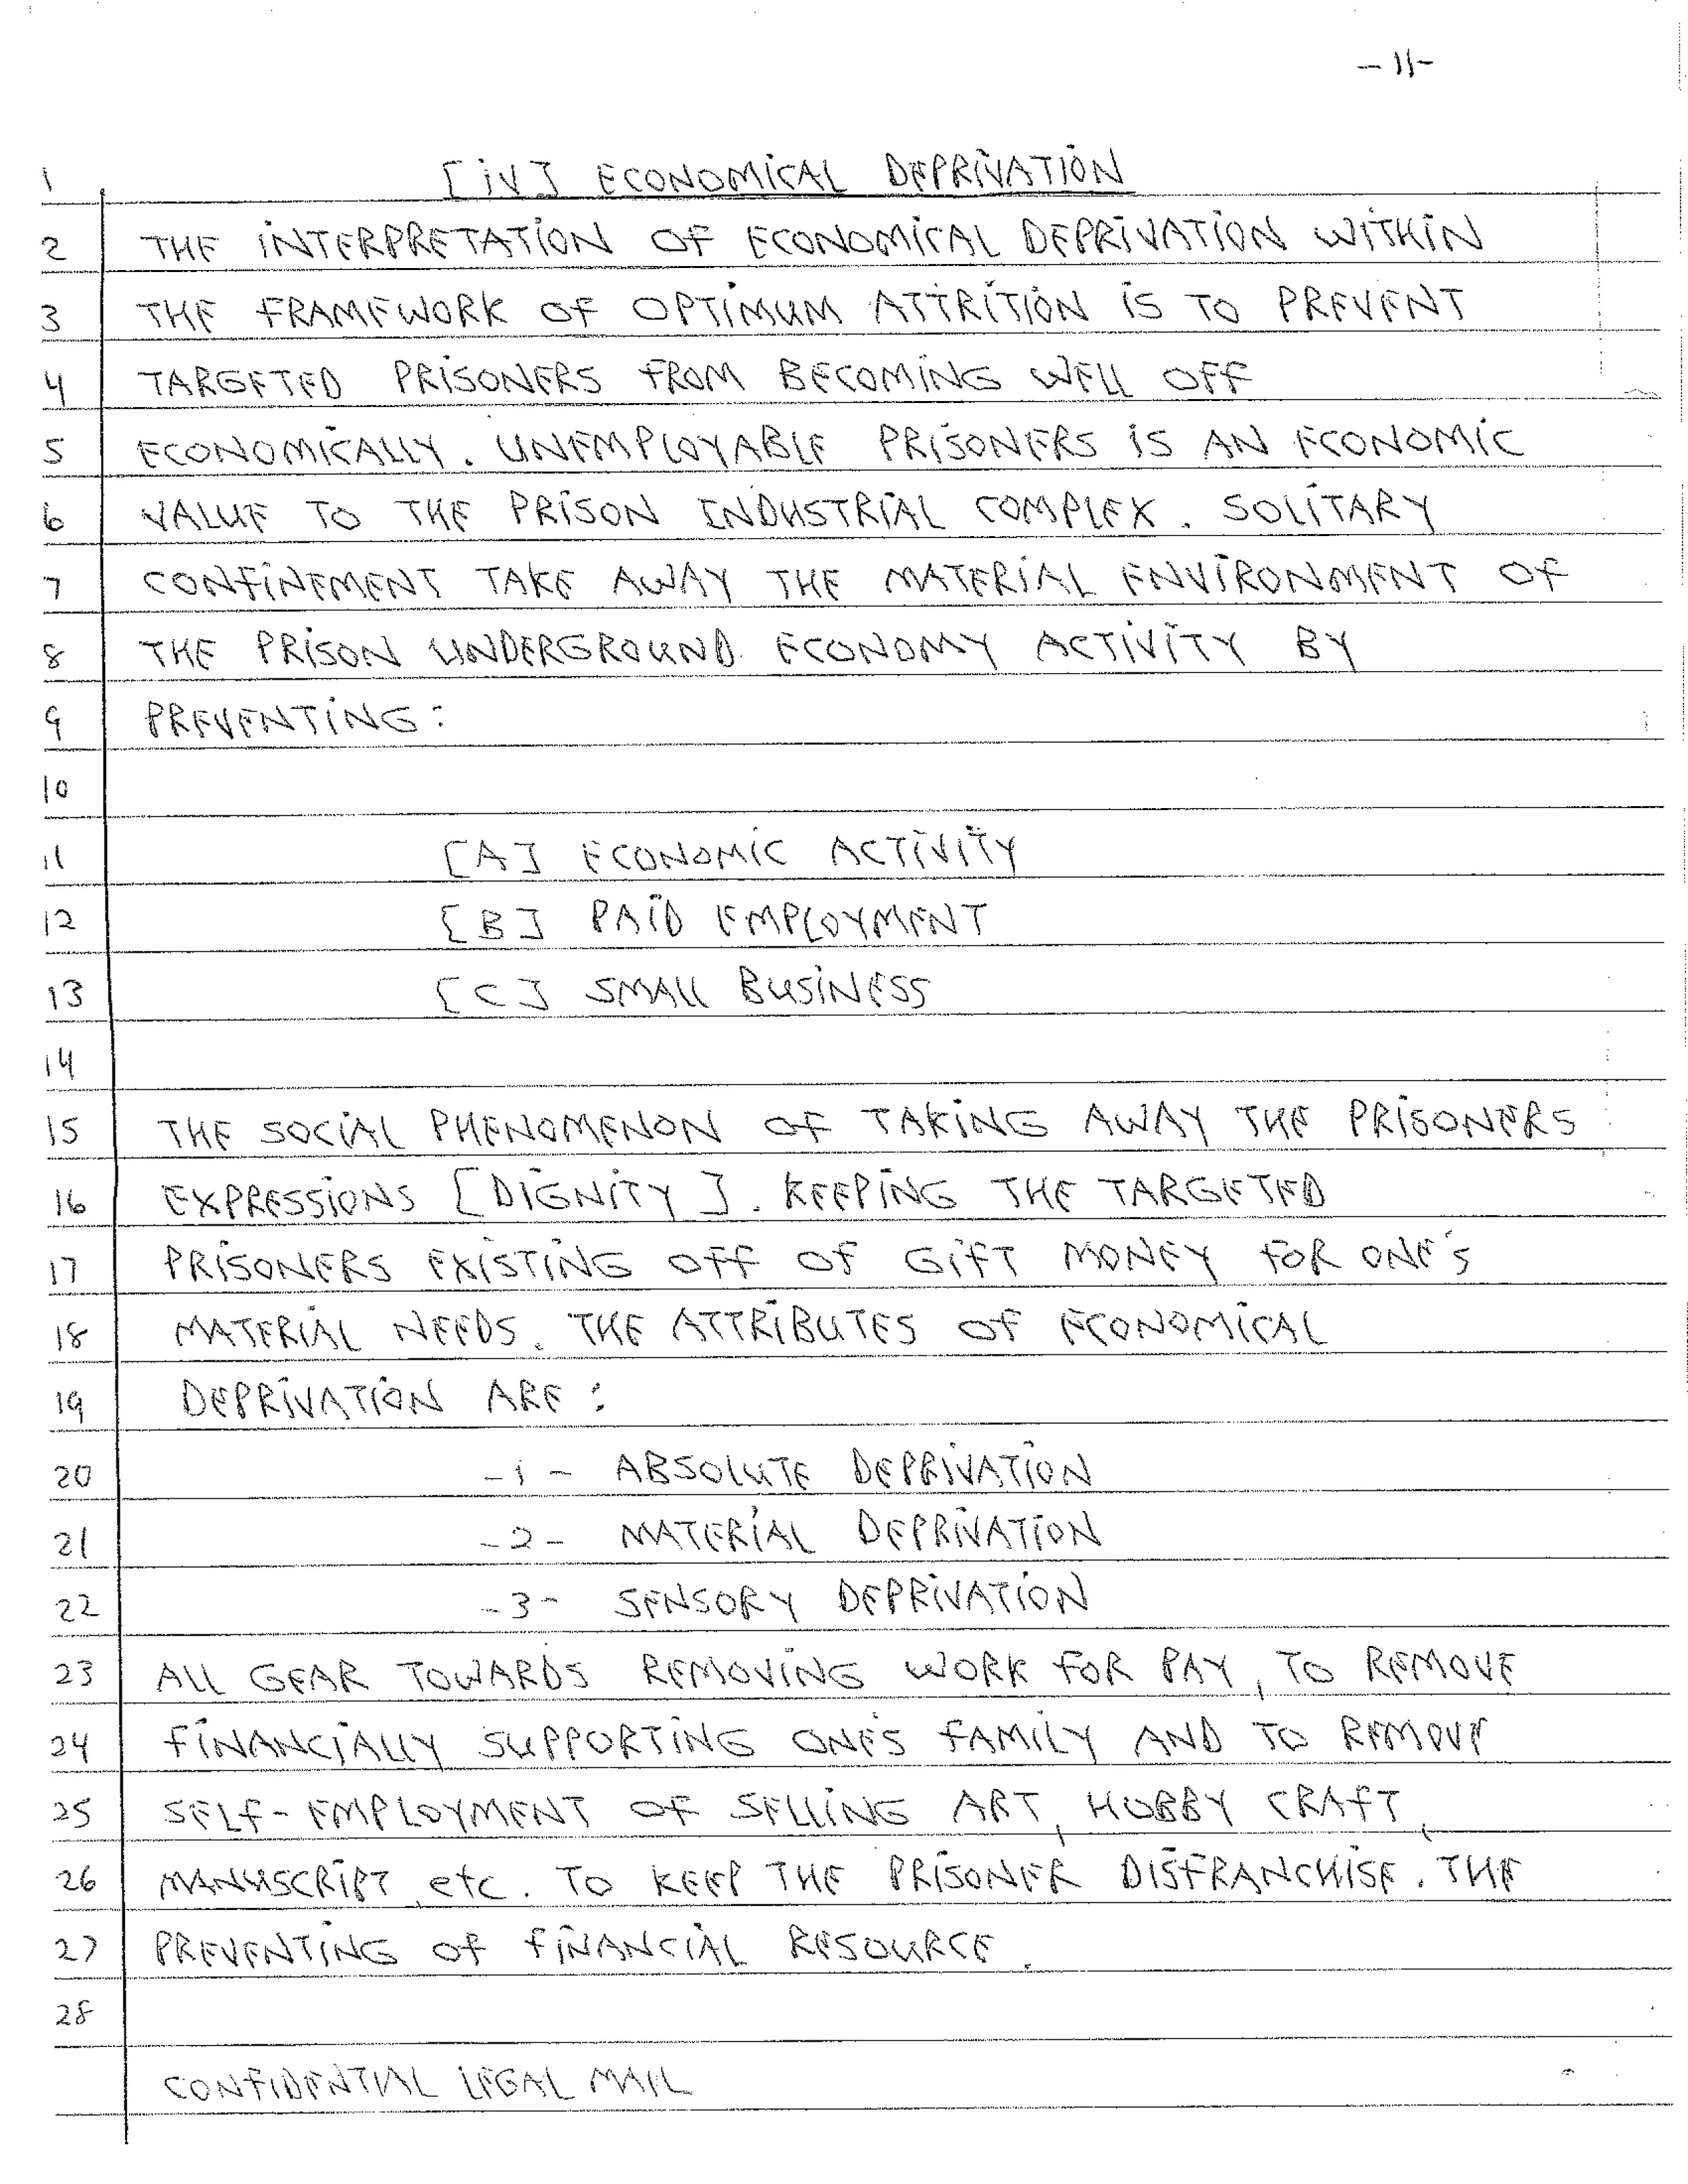 -11-
1 [iV] ECONOMICAL DEPRIVATION
2 THE INTERPRETATION OF ECONOMICAL DEPRIVATION WITHIN
3 THE FRAMEWORK OF OPTIMUM ATTRITION IS TO PREVENT
4 TARGETED PRISONERS FROM BECOMING WELL OFF
5 ECONOMICALLY. UNEMPLOYABLE PRISONERS IS AN ECONOMIC
6 VALUE TO THE PRISON INDUSTRIAL COMPLEX. SOLITARY
7 CONFINEMENT TAKE AWAY THE MATERIAL ENVIRONMENT OF
8 THE PRISON UNDERGROUND ECONOMY ACTIVITY BY
9 PREVENTING:
10
11 [A] ECONOMIC ACTIVITY
12 [B] PAID EMPLOYMENT
13 [C] SMALL BUSINESS
14
15 THE SOCIAL PHENOMENON OF TAKING AWAY THE PRISONERS
16 EXPRESSIONS [DIGNITY]. KEEPING THE TARGETED
17 PRISONERS EXISTING OFF OF GIFT MONEY FOR ONE'S
18 MATERIAL NEEDS. THE ATTRIBUTES OF ECONOMICAL
19 DEPRIVATION ARE:
20 -1- ABSOLUTE DEPRIVATION
21 -2- MATERIAL DEPRIVATION
22 -3- SENSORY DEPRIVATION
23 ALL GEAR TOWARDS REMOVING WORK FOR PAY, TO REMOVE
24 FINANCIALLY SUPPORTING ONE'S FAMILY AND TO REMOVE
25 SELF-EMPLOYMENT OF SELLING ART, HOBBY CRAFT,
26 MANUSCRIPT, etc. TO KEEP THE PRISONER DISFRANCHISE. THE
27 PREVENTING OF FINANCIAL RESOURCE.
28
CONFIDENTIAL LEGAL MAIL